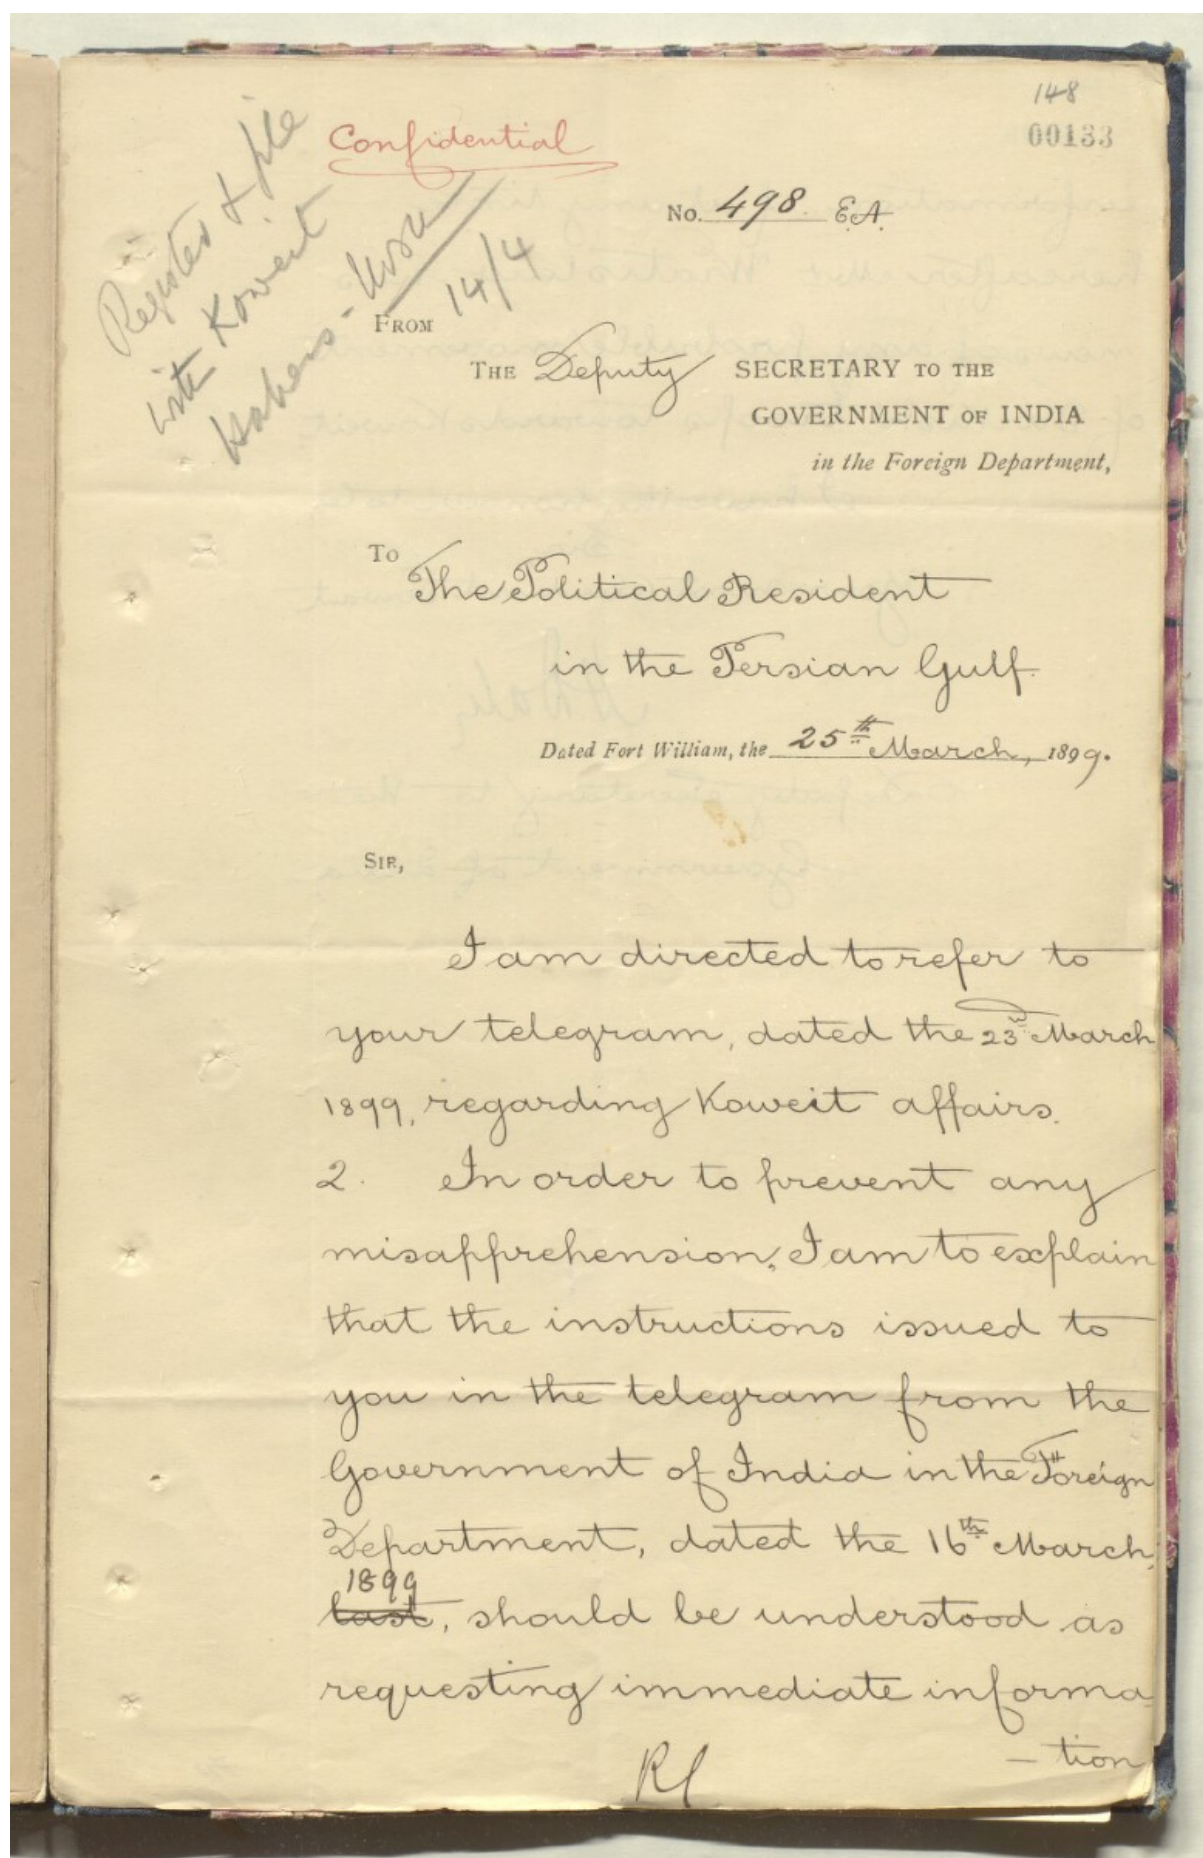 148
00133
Confidential
No. 498. E.A.
Register & file
with Koweit
14/4
FROM
THE Deputy SECRETARY TO THE
GOVERNMENT OF INDIA
in the Foreign Department,
To
The Political Resident
in the Persian Gulf.
Dated Fort William, the 25th March, 1899.
SIR,
I am directed to refer to
your telegram, dated the 23rd March
1899, regarding Koweit affairs.
2. In order to prevent any
misapprehension, I am to explain
that the instructions issued to
you in the telegram from the
Government of India in the Foreign
Department, dated the 16th March,
1899
last, should be understood as
requesting immediate informa
- tion